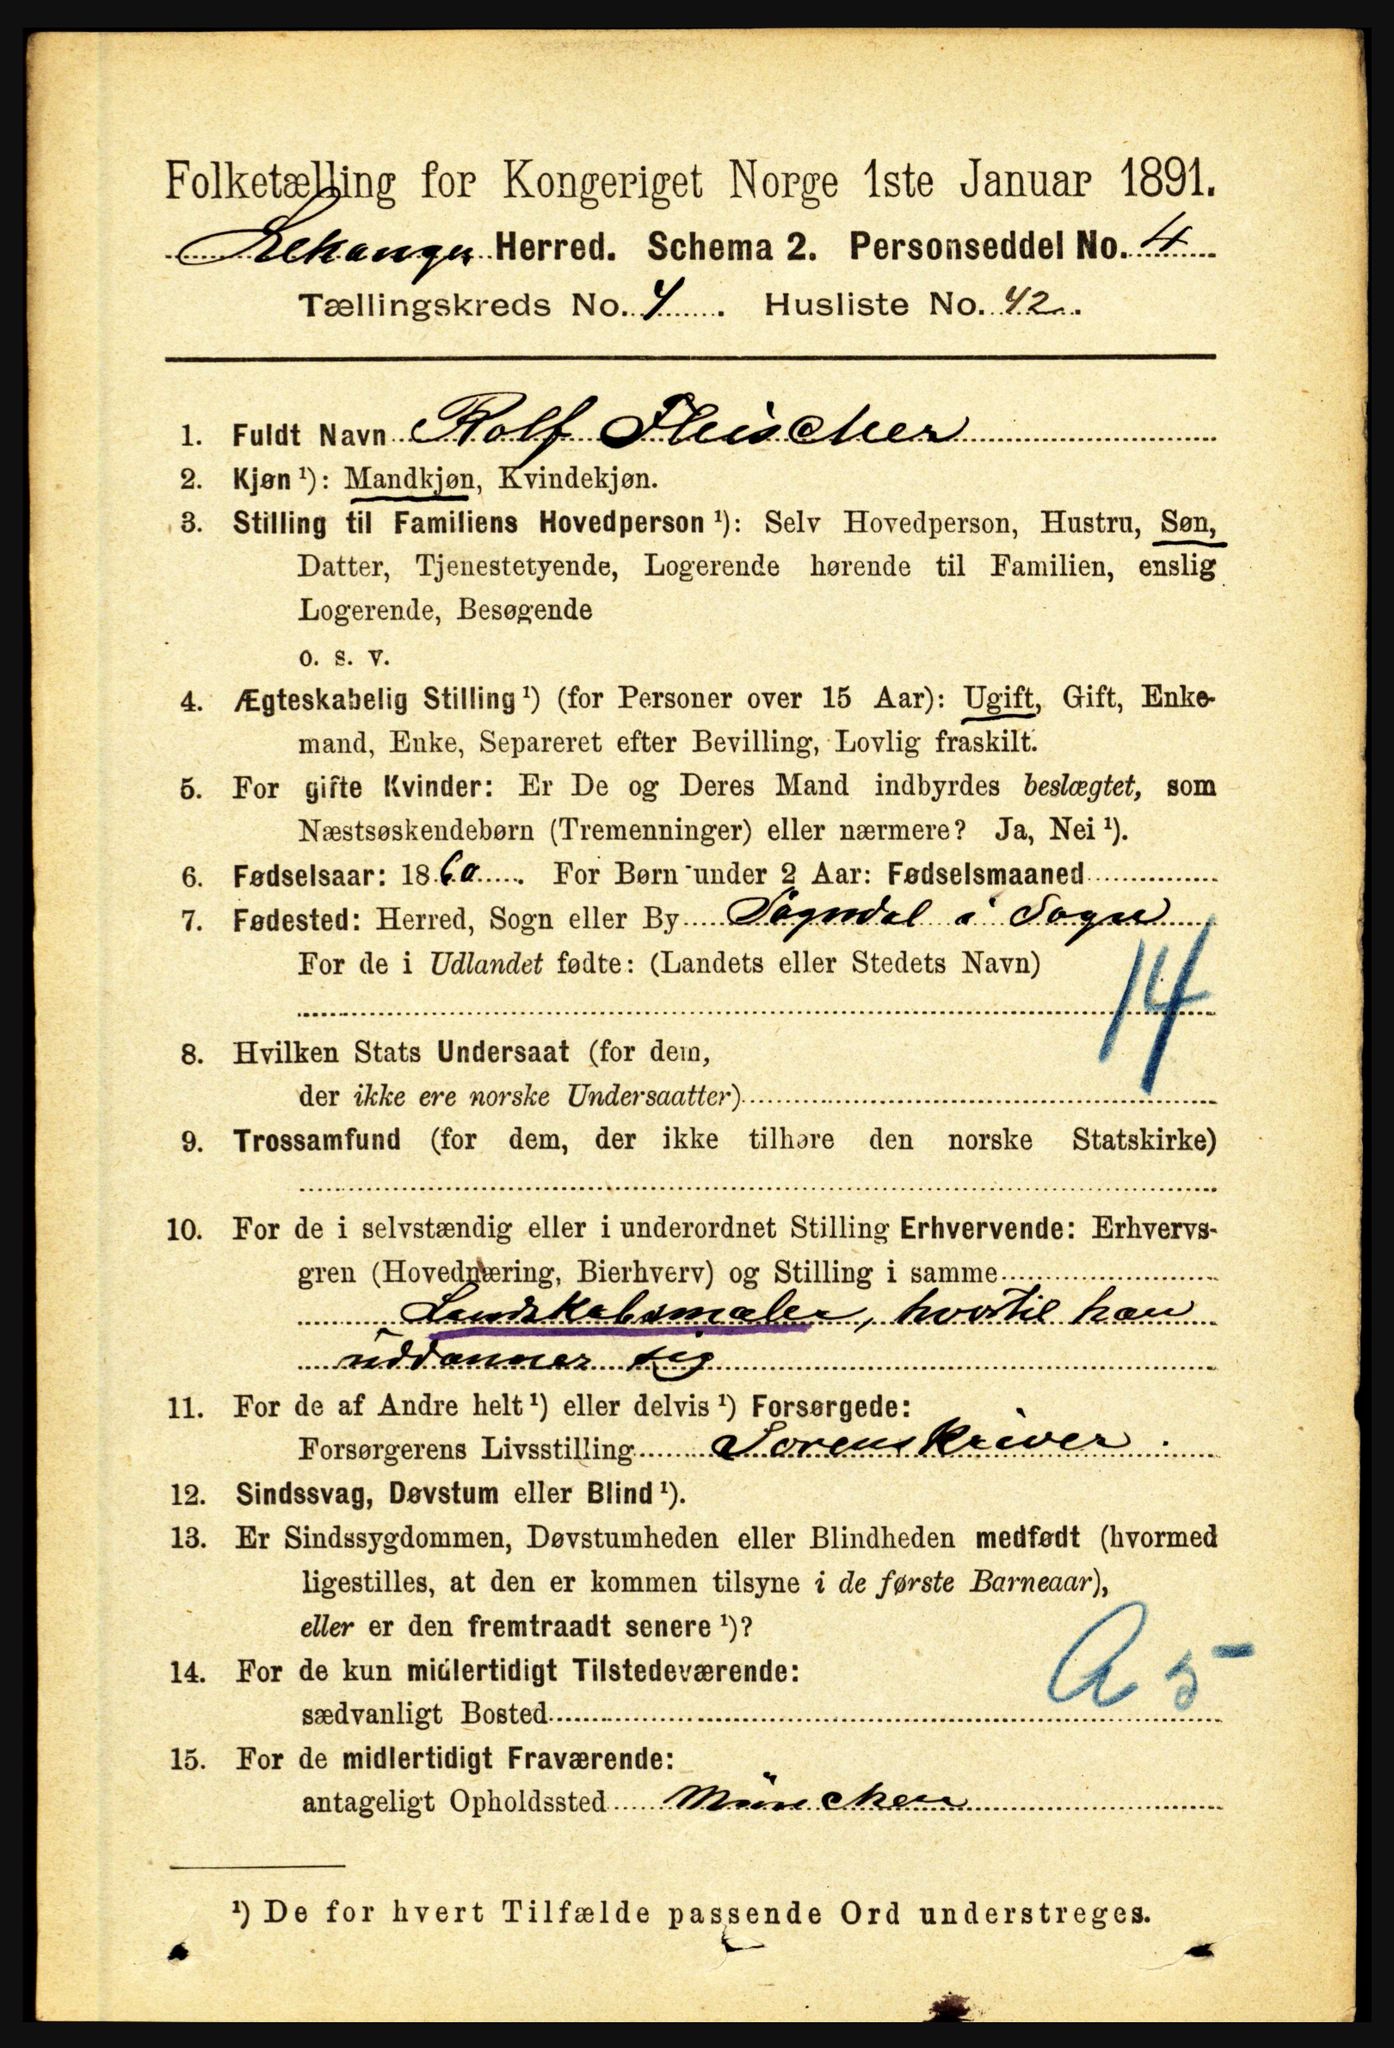 Folketælling for Kongeriget Norge 1ste Januar 1891.
Lekanger Herred. Schema 2. Personseddel No. 4
Tællingskreds No. 4. Husliste No. 42.
1. Fuldt Navn Rolf Fleischer
2. Kjøn ¹): Mandkjøn, Kvindekjøn.
3. Stilling til Familiens Hovedperson ¹): Selv Hovedperson, Hustru, Søn,
Datter, Tjenestetyende, Logerende hørende til Familien, enslig
Logerende, Besøgende
o. s. v.
4. Ægteskabelig Stilling ¹) (for Personer over 15 Aar): Ugift, Gift, Enke-
mand, Enke, Separeret efter Bevilling, Lovlig fraskilt.
5. For gifte Kvinder: Er De og Deres Mand indbyrdes beslægtet, som
Næstsøskendebørn (Tremenninger) eller nærmere? Ja, Nei ¹).
6. Fødselsaar: 1860. For Børn under 2 Aar: Fødselsmaaned
7. Fødested: Herred, Sogn eller By Sogndal i Sogn
For de i Udlandet fødte: (Landets eller Stedets Navn)
14
8. Hvilken Stats Undersaat (for dem,
der ikke ere norske Undersaatter)
9. Trossamfund (for dem, der ikke tilhøre den norske Statskirke)
10. For de i selvstændig eller i underordnet Stilling Erhvervende: Erhvervs-
gren (Hovednæring, Bierhverv) og Stilling i samme
Landskabsmaler, hvortil han
uddanner sig
11. For de af Andre helt ¹) eller delvis ¹) Forsørgede:
Forsørgerens Livsstilling Sorenskriver.
12. Sindssvag, Døvstum eller Blind ¹).
13. Er Sindssygdommen, Døvstumheden eller Blindheden medfødt (hvormed
ligestilles, at den er kommen tilsyne i de første Barneaar),
eller er den fremtraadt senere ¹)?
14. For de kun midlertidigt Tilstedeværende:
A 5
sædvanligt Bosted
15. For de midlertidigt Fraværende:
antageligt Opholdssted München
¹) De for hvert Tilfælde passende Ord understreges.